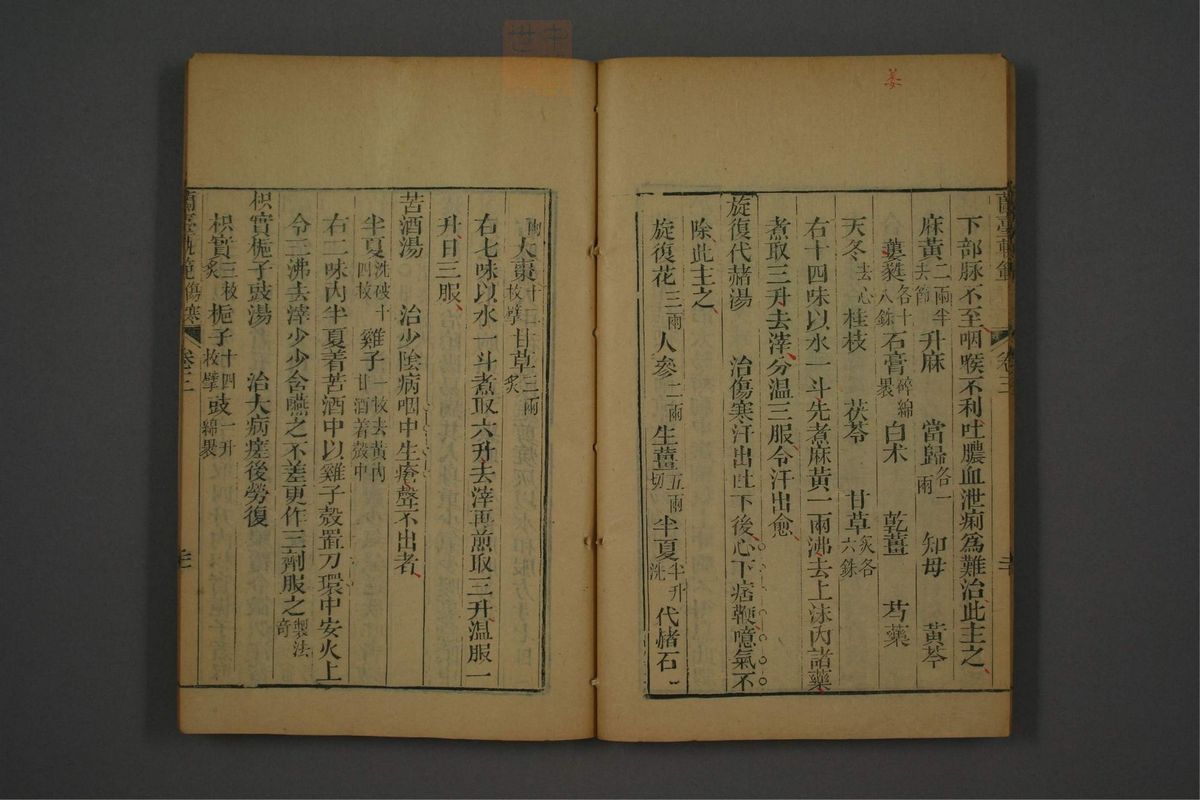 姜
下部脉不至咽喉不利吐膿血泄痢爲難治此主之
麻黃二兩半去節升麻　當歸各一兩　知母　黃芩
萎蕤各十八銖石膏碎綿裹白术　乾薑　芍藥
天冬去心桂枝　茯苓　甘草炙各六銖
右十四味以水一斗先煮麻黃一兩沸去上沫內諸藥
煮取三升去滓分温三服令汗出愈
旋復代赭湯　治傷寒汗出吐下後心下痞鞕噫氣不
除此主之
旋復花三兩　人參二兩生薑五兩切　半夏半升洗代赭石一
兩大棗十二枚擘甘草三兩炙
右七味以水一斗煮取六升去滓再煎取三升温服一
升日三服
苦酒湯　治少陰病咽中生瘡聲不出者
半夏洗破十四枚雞子一枚去黃內甘酒着殼中
右二味內半夏着苦酒中以雞子殼置刀環中安火上
令三沸去滓少少含嚥之不差更作三劑服之製法奇
枳實梔子豉湯　治大病瘥後勞復
枳實三枚炙梔子十四枚擘豉一升綿裹
蘭臺軌範傷寒　卷三